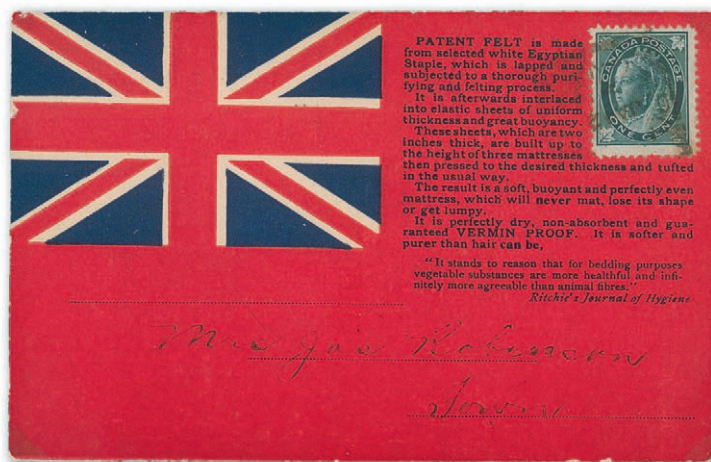 PATENT FELT is made
from selected white Egyptian
Staple, which is lapped and
subjected to a thorough puri-
fying and felting process.
It is afterwards interlaced
into elastic sheets of uniform
thickness and great buoyancy.
These sheets, which are two
inches thick, are built up to
the height of three mattresses
then pressed to the desired thickness and tufted
in the usual way.
The result is a soft, buoyant and perfectly even
mattress, which will never mat, lose its shape
or get lumpy.
It is perfectly dry, non-absorbent and gua-
ranteed VERMIN PROOF. It is softer and
purer than hair can be,
"It stands to reason that for bedding purposes
vegetable substances are more healthful and infi-
nitely more agreeable than animal fibres."
Ritchie's Journal of Hygiene
CANADA POSTAGE
ONE CENT
Mrs Jos Robinson